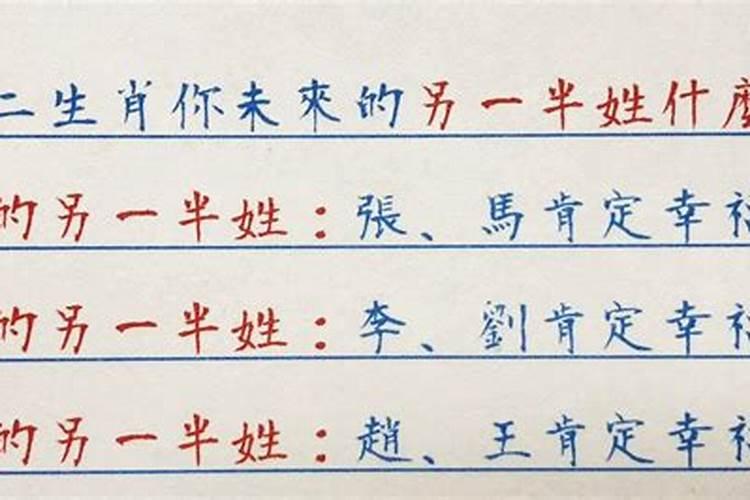 二生肖你未來的另一半姓什麼
的另一半姓：張、馬肯定幸福
的另一半姓：李、劉肯定幸福
的另一半姓：趙、王肯定幸福